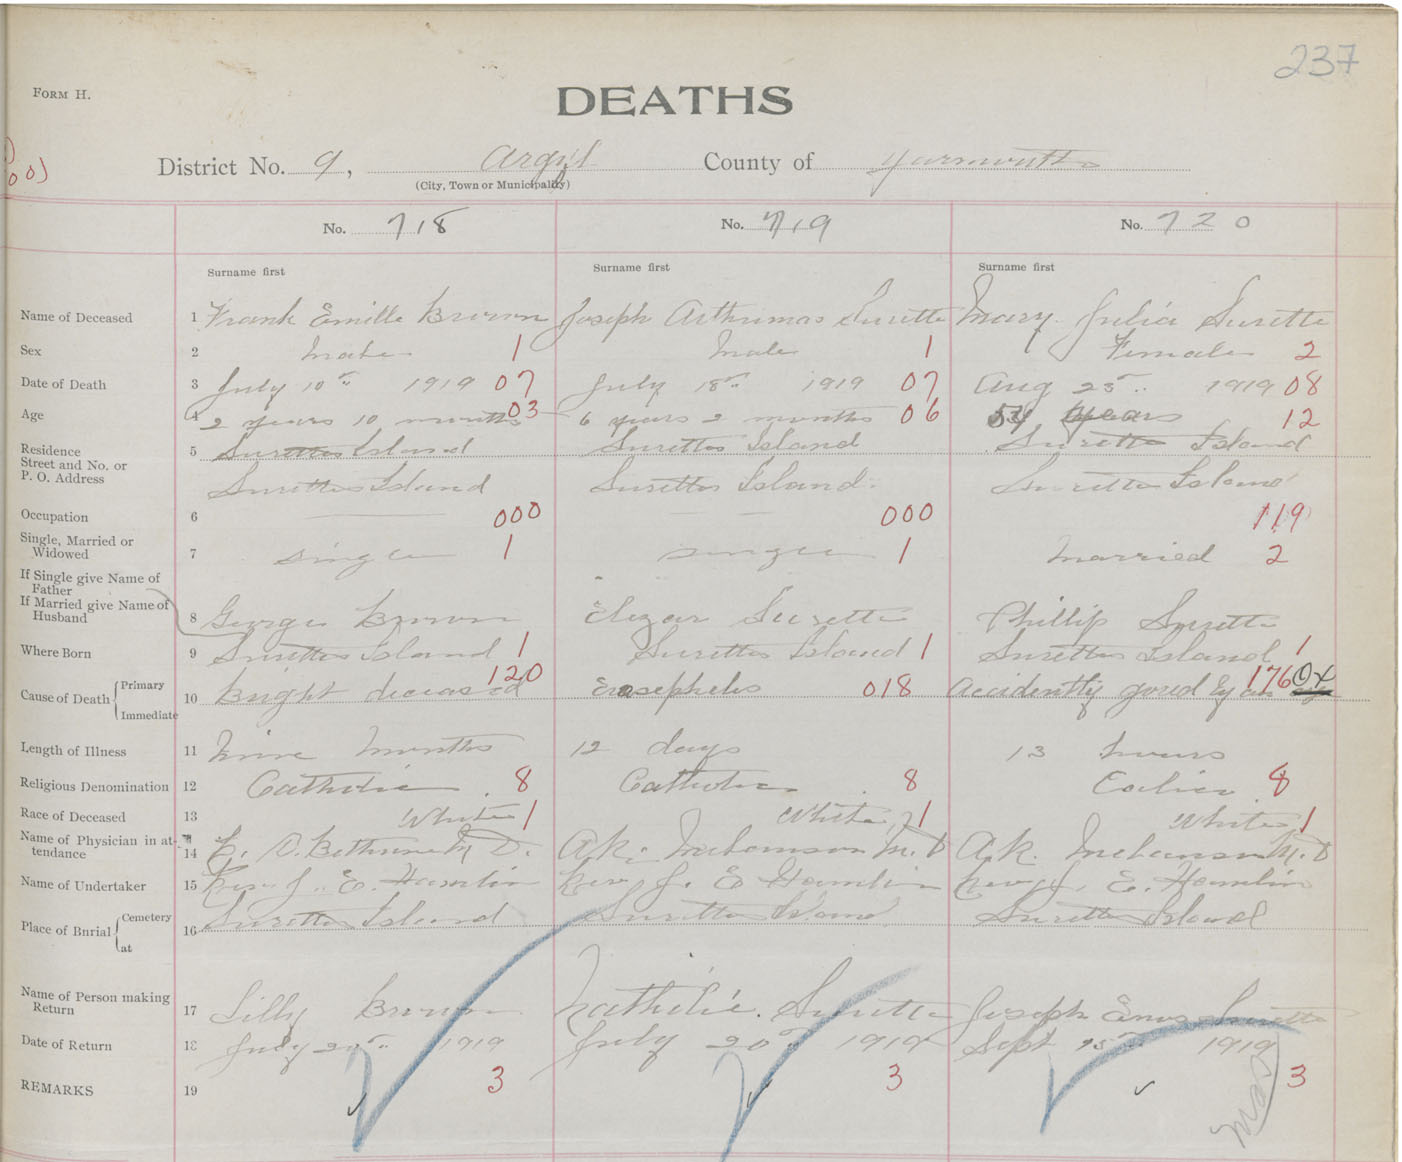 237
FORM H.
DEATHS
District No. 9, Argyl County of Yarmouth
(City, Town or Municipality)
No. 718 No. 719 No. 720
Surname first Surname first Surname first
Name of Deceased 1 Frank Emille Brown Joseph Arthumas Surette Mary Julia Surette
Sex 2 Male 1 Male 1 Female 2
Date of Death 3 July 10th 1919 07 July 18th 1919 07 Aug 25th 1919 08
Age 4 2 years 10 months 03 6 years 2 months 06 54 years 12
Residence 5 Surettes Island Surettes Island Surettes Island
Street and No. or
P. O. Address Surettes Island Surettes Island Surettes Island
Occupation 6 000 000 119
Single, Married or
Widowed 7 single 1 single 1 married 2
If Single give Name of
Father
If Married give Name of
Husband 8 George Brown Elizar Surette Phillip Surette
Where Born 9 Surettes Island 1 Surettes Island 1 Surettes Island 1
Cause of Death Primary 10 Bright deceased 120 Erasephelis 018 Accidently gored by an Ox 176
Immediate
Length of Illness 11 Nine months 12 days 13 hours
Religious Denomination 12 Catholic 8 Catholic 8 8
Race of Deceased 13 White 1 White 1 White 1
Name of Physician in at-
tendance 14 Bethune M D. A.K. M.D A.K. M.D
Name of Undertaker 15 Rev J. E. Hamlin Rev J. E Hamlin Rev J. E. Hamlin
Place of Burial Cemetery 16 Surettes Island Surettes Island Surettes Island
at
Name of Person making
Return 17 Lilly Brown Nathilie. Surette Joseph Enos Surette
Date of Return 18 July 20th 1919 July 20th 1919 Sept 15th 1919
REMARKS 19 3 3 3